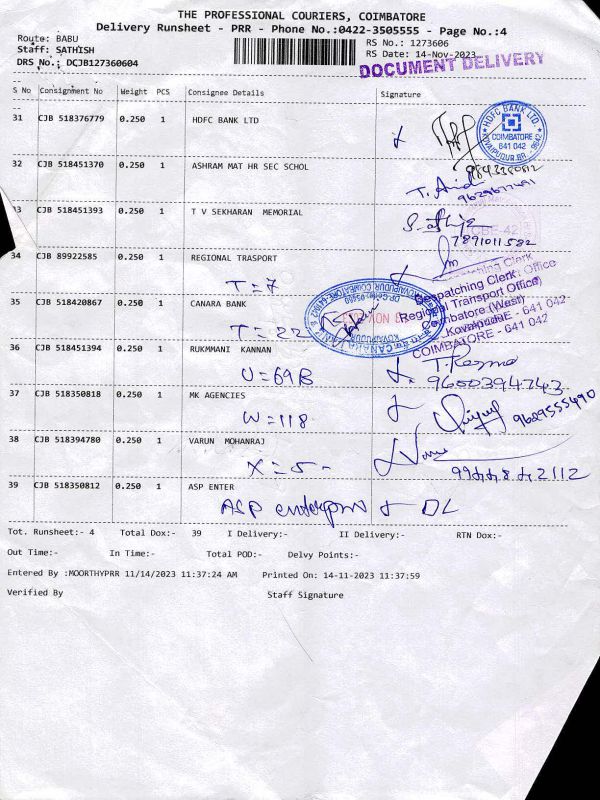 THE PROFESSIONAL COURIERS, COIMBATORE
Delivery Runsheet - PRR - Phone No.:0422-3505555 - Page No.:4
Route: BABU
RS No.: 1273606
Staff: SATHISH
RS Date: 14-Nov-2023
DRS No.: DCJB127360604
DOCUMENT DELIVERY
S No Consignment No Weight PCS Consignee Details Signature
31 CJB 518376779 0.250 1 HDFC BANK LTD
HDFC BANK LTD.
COIMBATORE
641 042
32 CJB 518451370 0.250 1 ASHRAM MAT HR SEC SCHOL
33 CJB 518451393 0.250 1 T V SEKHARAN MEMORIAL
7891011582
34 CJB 89922585 0.250 1 REGIONAL TRASPORT
T=7
Despatching Clerk
Regional Transport Office)
Coimbatore (West)
COIMBATORE - 641 042
35 CJB 518420867 0.250 1 CANARA BANK
T=22
36 CJB 518451394 0.250 1 RUKMMANI KANNAN
U=69B
9600394743
37 CJB 518350818 0.250 1 MK AGENCIES
W=118
9629555490
38 CJB 518394780 0.250 1 VARUN MOHANRAJ
X=5-
39 CJB 518350812 0.250 1 ASP ENTER
DL
Tot. Runsheet:- 4 Total Dox:- 39 I Delivery:- II Delivery:- RTN Dox:-
Out Time:- In Time:- Total POD:- Delvy Points:-
Entered By :MOORTHYPRR 11/14/2023 11:37:24 AM Printed On: 14-11-2023 11:37:59
Verified By Staff Signature